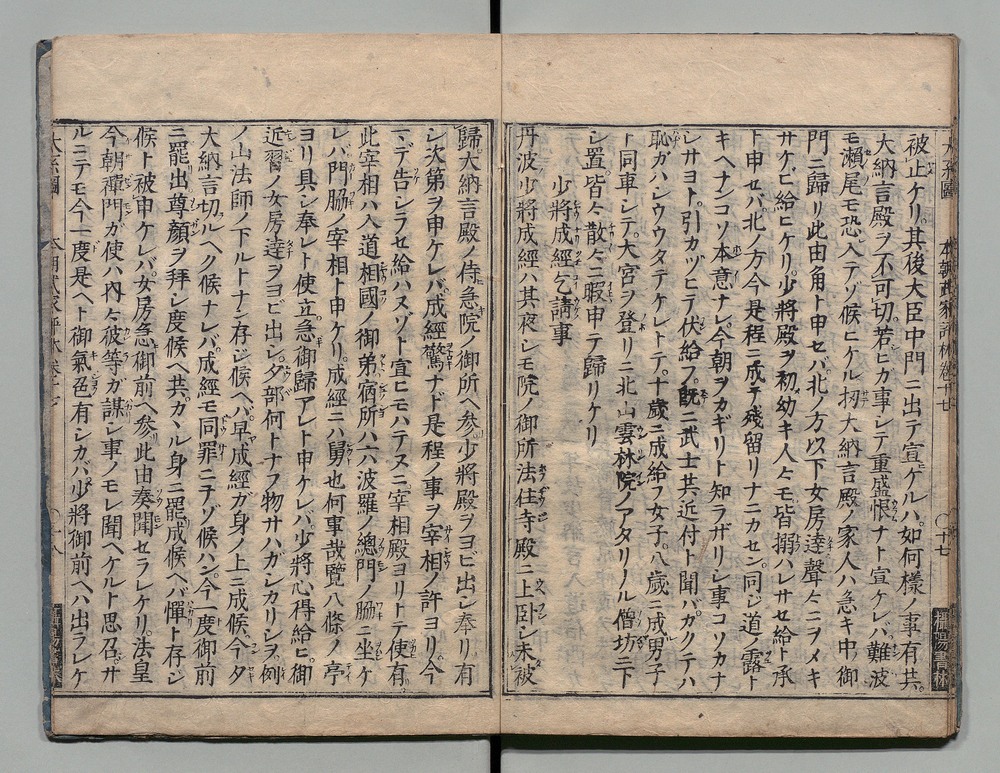 被止ケリ。其後大臣中門ニ出テ宣ケルハ。如何樣ノ事有共。
大納言殿ヲ不可切。若ヒカ事シテ重盛恨ナト宣ケレバ。難波
モ瀬尾モ恐入テゾ候ヒケル。扨大納言殿ノ家人ハ急キ中御
門ニ歸リ此由角ト申セバ。北ノ方以下女房達聲々ニヲメキ
サケビ給ヒケリ。少將殿ヲ初幼キ人々モ皆搦ハレサセ給ト承
ト申セバ。北ノ方今是程ニ成テ殘留リナニカセン。同シ道ノ露ト
キヘナンコソ本意ナレ。今朝ヲカギリト知ラザリシ事コソカナ
シサヨト。引カツヒテ伏給フ。既ニ武士共近付ト聞バ。カクテハ
恥ガハシウウタテケレトテ。十歳ニ成給フ女子。八歳ニ成男子
ト同車シテ。大宮ヲ登リニ北山雲林院ノアタリナル僧坊ニ下
シ置。皆々散々ニ暇申テ歸リケリ
少將成經乞請事
丹波少將成經ハ其夜シモ院ノ御所法住寺殿ニ上臥シ未被
歸。大納言殿ノ侍急院ノ御所ヘ參リ少將殿ヲヨビ出シ奉リ有
シ次第ヲ申ケレバ。成經驚ナド是程ノ事ヲ宰相ノ許ヨリ今
マデ告シラセ給ハヌゾト宣ヒモハテヌニ。宰相殿ヨリトテ使有。
此宰相ハ入道相國ノ御弟。宿所ハ六波羅ノ總門ノ脇ニ坐ケ
レバ。門脇ノ宰相ト申ケリ。成經ニハ舅也。何事哉覽八條ノ亭
ヨリ具シ奉レト使立。急御歸アレト申ケレバ。少將心得給ヒ。御
近習ノ女房達ヲヨビ出シ。夕部何トナフ物サハガシカリシヲ。例
ノ山法師ノ下ルトナン存ジ候ヘバ。早成經ガ身ノ上ニ成候。今夕
大納言切ルヘク候ナレバ。成經モ同罪ニテゾ候ハン。今一度御前
ニ罷出尊顔ヲ拜シ度候ヘ共。カヽル身ニ罷成候ヘバ。憚ト存ジ
候ト被申ケレバ。女房急御前ヘ參。此由奏聞セラレケリ。法皇
今朝禪門ガ使ハ内々彼等ガ謀シ事ノモレ聞ヘケルト思召サ
ルニテモ今一度是ヘト御氣色有シカバ。少將御前ヘハ出ラレケ